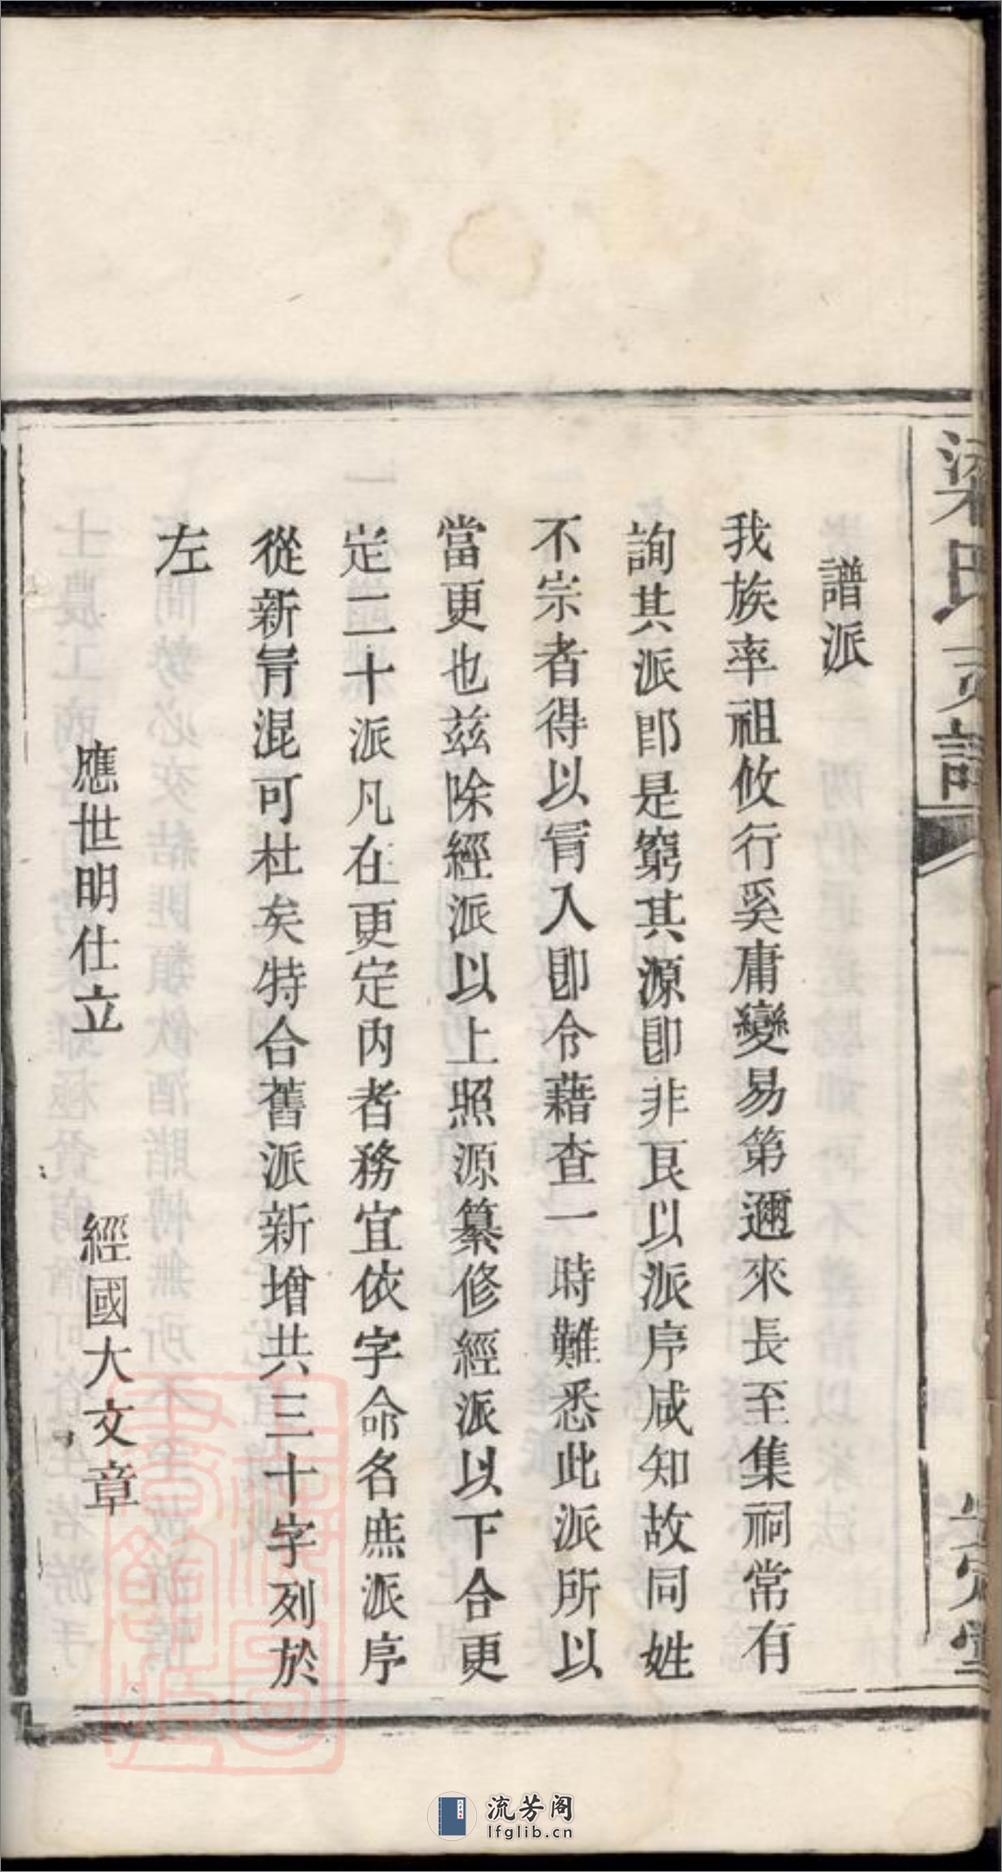 梁氏支譜
譜派
我族率祖攸行奚庸變易第邇來長至集祠常有
詢其派郎是窮其源卽非艮以派序咸知故同姓
不宗者得以冐入卽令藉查一時難悉此派所以
當更也兹除經派以上照源纂修經派以下合更
定二十派凡在更定内者務宜依字命名庶派序
從新冐混可杜矣特合舊派新增共三十字列於
左
應世明仕立 經國大文章
流芳阁
lfglib.cn